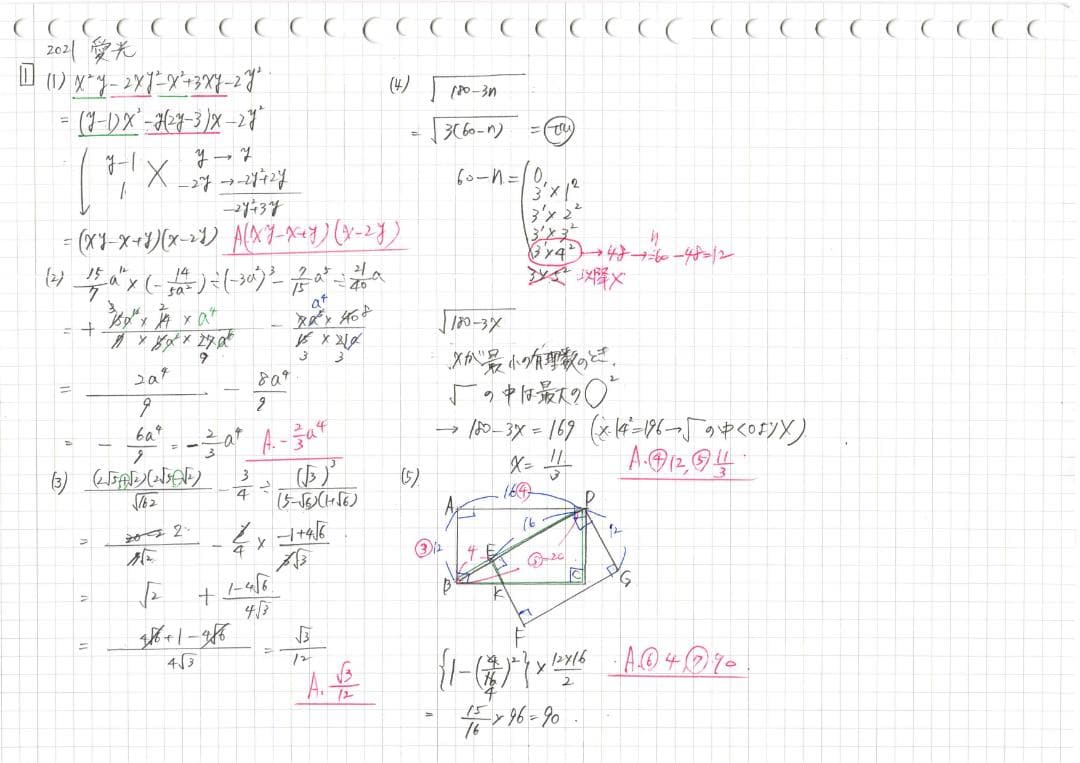 2021 愛光
1 (1) x²y-2xy²-x²+3xy-2y²
= (y-1)x²-y(2y-3)x-2y²
y-1 y → y
1 -2y → -2y²+2y
-2y²+3y
= (xy-x+y)(x-2y) A(xy-x+y)(x-2y)
(2) 15/7 a¹² × (-14/5a²) ÷ (-3a²)³ - 7/15 a⁵ ÷ 21/40 a
= + 15a¹² × 14 × a⁴ / 7 × 5a² × 27a⁶ - 7a⁵ × 40 / 15 × 21a
3 2 9 a⁴ 8 3 3
= 2a⁴/9 - 8a⁴/9
= - 6a⁴/9 = -2/3 a⁴ A. -2/3 a⁴
(3) (2√5+√2)(2√5-√2)/√162 - 3/4 ÷ (√3)³/(5-√6)(1+√6)
= 2/√2 - 3/4 × -1+4√6/3√3
= √2 + 1-4√6/4√3
= 4√6+1-4√6/4√3 = √3/12
A. √3/12
(4) √180-3n
= √3(60-n) =
60-n = 0
3¹×1²
3¹×2²
3¹×3²
3¹×4² → 48 → n=60-48=12
3×5² 以降×
√180-3x
xが最小の有理数のとき.
√の中は最大の○²
→ 180-3x=169 (※14²=196→√の中<0より×)
x= 11/3 A.④12, ⑤11/3
(5)
16 ④
A D
③ 12 16 12
4 E ⑤=20
B K C G
F
{1-(4/16)²}× 12×16/2 A.⑥4, ⑦90
4
= 15/16 ×96=90.